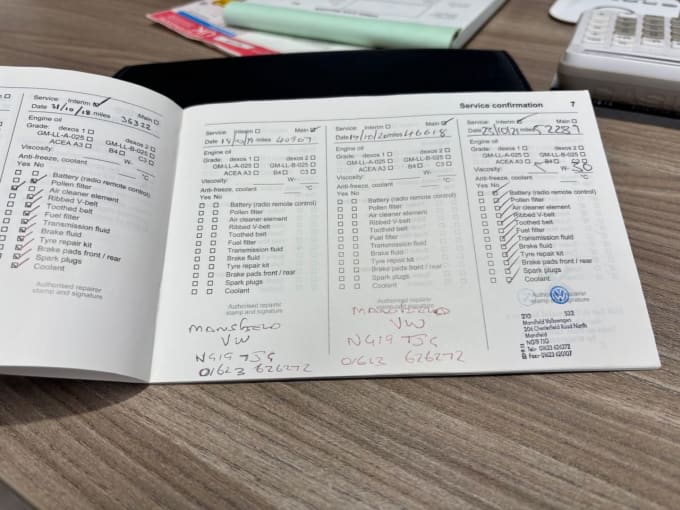 Service: Interim ☑ Main ☐
Date 31/10/18 miles 36322
Engine oil
Grade: dexos 1 ☐ dexos 2 ☐
GM-LL-A-025 ☐ GM-LL-B-025 ☐
ACEA A3 ☐ B4 ☐ C3 ☐
Viscosity: W-
Anti-freeze, coolant °C
Yes No
Battery (radio remote control)
Pollen filter
Air cleaner element
Ribbed V-belt
Toothed belt
Fuel filter
Transmission fluid
Brake fluid
Tyre repair kit
Brake pads front / rear
Spark plugs
Coolant
Authorised repairer
stamp and signature
Service confirmation 7
Service: Interim ☐ Main ☑
miles 40907
Engine oil
Grade: dexos 1 ☐ dexos 2 ☐
GM-LL-A-025 ☐ GM-LL-B-025 ☐
ACEA A3 ☐ B4 ☐ C3 ☐
Viscosity: W-
Anti-freeze, coolant °C
Yes No
Battery (radio remote control)
Pollen filter
Air cleaner element
Ribbed V-belt
Toothed belt
Fuel filter
Transmission fluid
Brake fluid
Tyre repair kit
Brake pads front / rear
Spark plugs
Coolant
Authorised repairer
stamp and signature
MANSFIELD
VW
NG19 7JG
01623 626272
Service: Interim ☐ Main ☑
/10/20 miles 46618
Engine oil
Grade: dexos 1 ☐ dexos 2 ☐
GM-LL-A-025 ☐ GM-LL-B-025 ☐
ACEA A3 ☐ B4 ☐ C3 ☐
Viscosity: W-
Anti-freeze, coolant °C
Yes No
Battery (radio remote control)
Pollen filter
Air cleaner element
Ribbed V-belt
Toothed belt
Fuel filter
Transmission fluid
Brake fluid
Tyre repair kit
Brake pads front / rear
Spark plugs
Coolant
Authorised repairer
stamp and signature
MANSFIELD
VW
NG19 7JG
01623 626272
Service: Interim ☑ Main ☐
Date 25/10/21 miles 52289
Engine oil
Grade: dexos 1 ☐ dexos 2 ☐
GM-LL-A-025 ☐ GM-LL-B-025 ☐
ACEA A3 ☐ B4 ☐ C3 ☐
Viscosity: W- 30
Anti-freeze, coolant °C
Yes No
Battery (radio remote control)
Pollen filter
Air cleaner element
Ribbed V-belt
Toothed belt
Fuel filter
Transmission fluid
Brake fluid
Tyre repair kit
Brake pads front / rear
Spark plugs
Coolant
Authorised repairer
stamp and signature
210 532
Mansfield Volkswagen
206 Chesterfield Road North
Mansfield
NG19 7JG
Tel: 01623 626272
Fax: 01623 620107